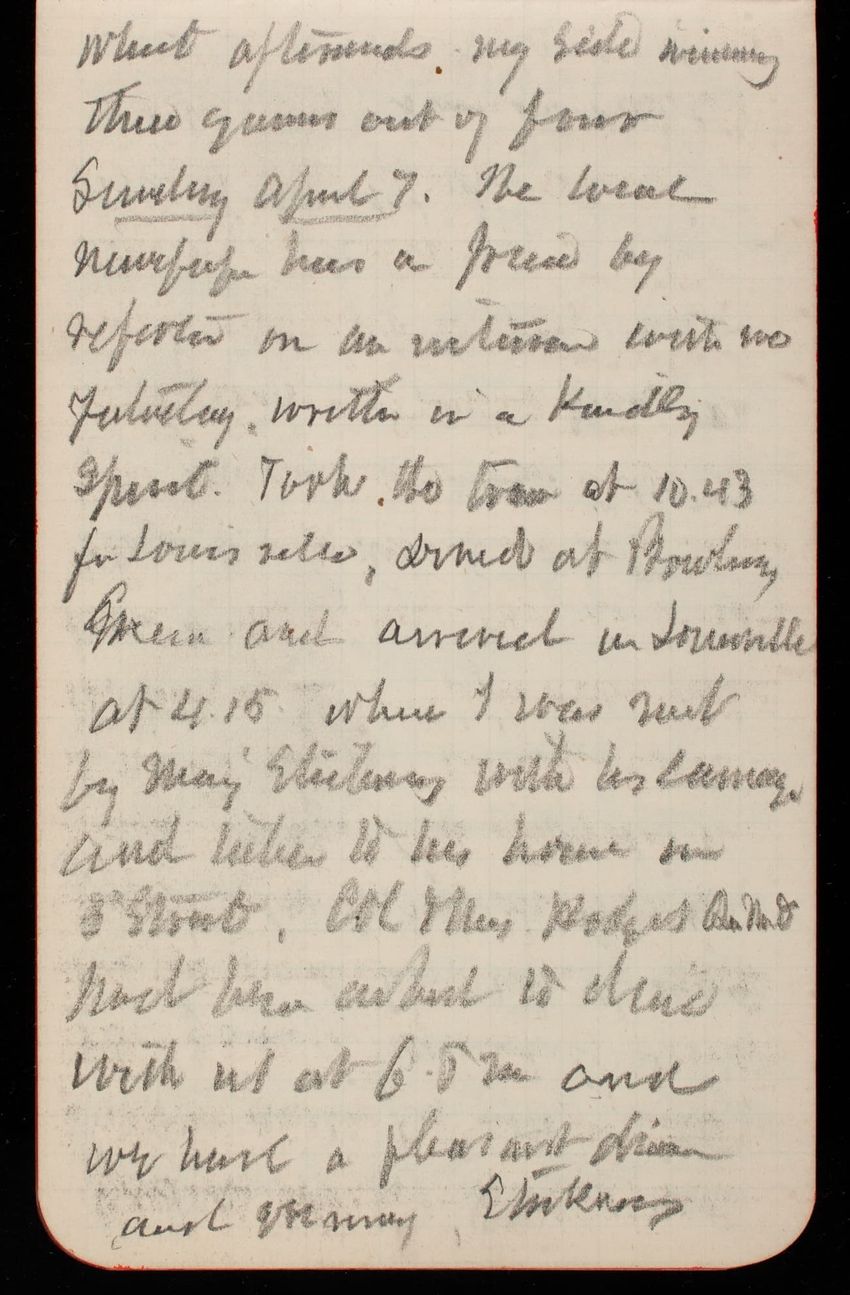 Whist afterwards my side winning
three games out of four
Sunday April 7. The local
newspaper has a piece by
reporter on an interview with me
yesterday. written in a Kindly
Spirit. Took the train at 10.43
for Louisville, dined at Bowling
Green and arrived in Louisville
at 4.15 where I was met
by Maj Stickney with his carriage
and taken to his home on
3d Street. Col & Mrs
had been asked to dine
with us at 6 P m and
we had a pleasant dinner
and evening. Stickney